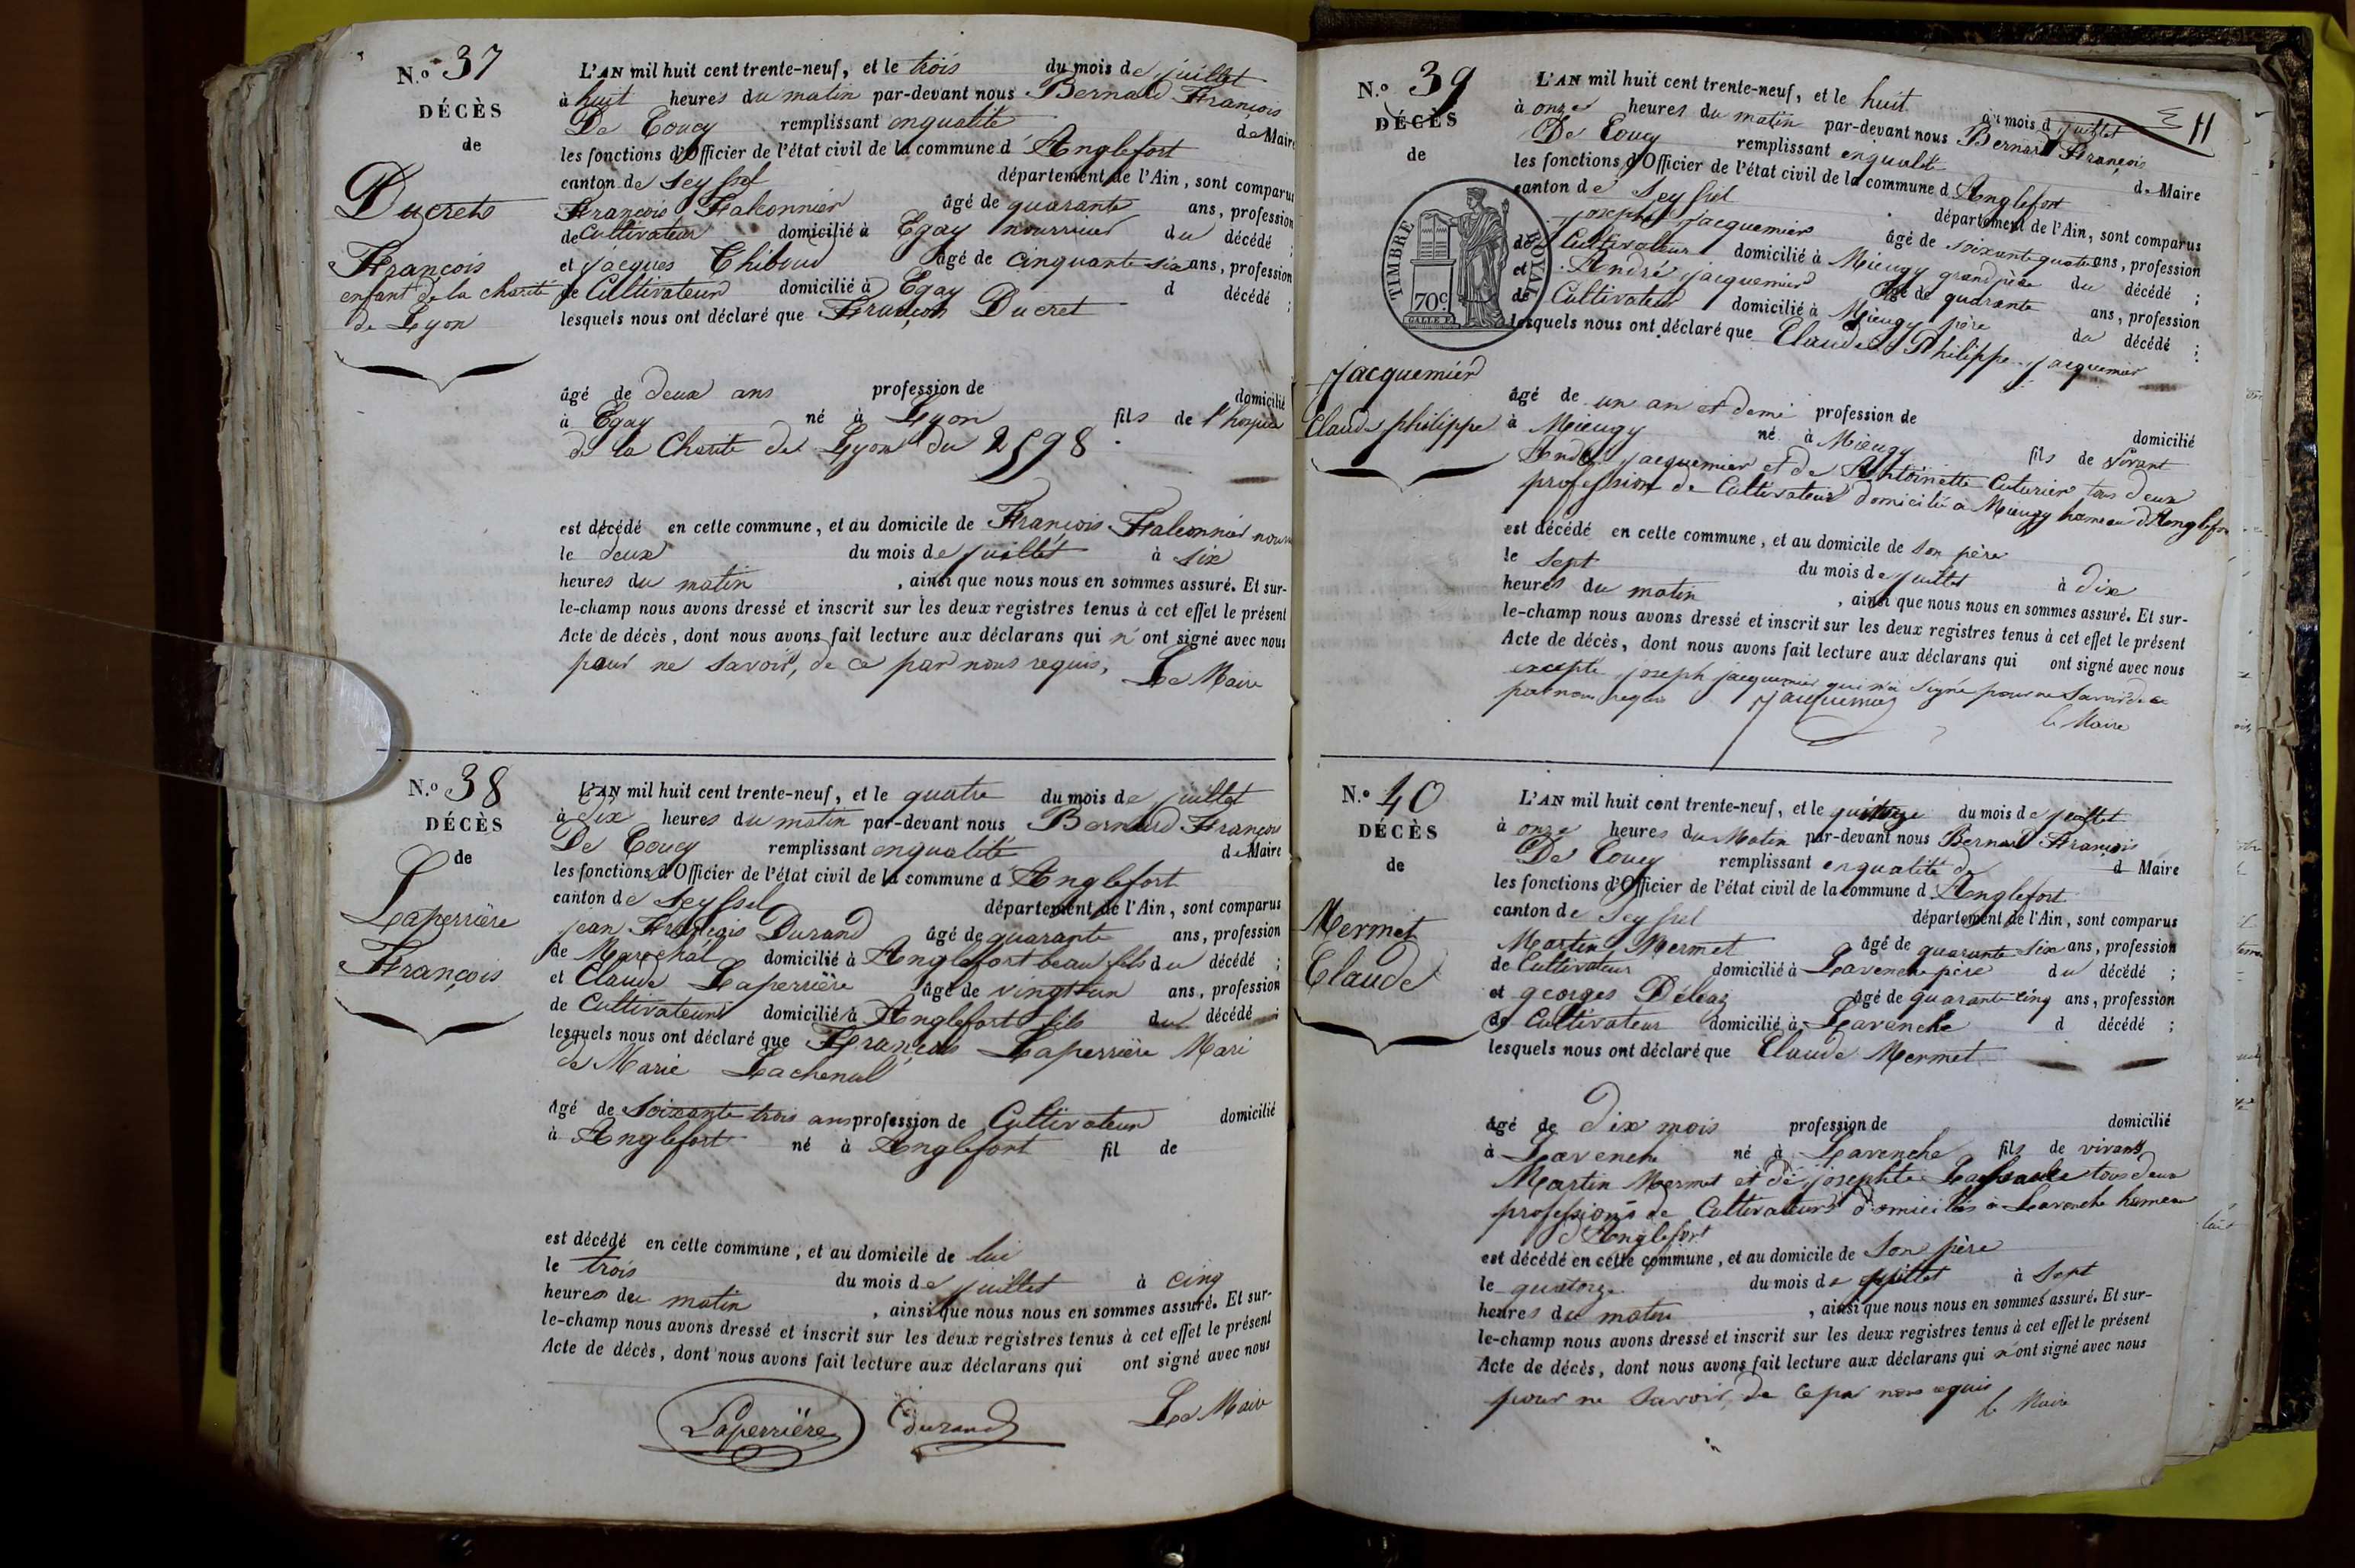 N.o 37
DÉCÈS
de
Ducrets
François
enfant de la charité
de Lyon
L'AN mil huit cent trente-neuf, et le trois du mois de juillet
à huit heures du matin par-devant nous Bernard François
De Coucy remplissant en qualité de Maire
les fonctions d'Officier de l'état civil de la commune d'Anglefort
canton de Seyssel département de l'Ain, sont comparus
François Falconnier âgé de quarante ans, profession
de Cultivateur domicilié à Egay nourricier du décédé ;
et jacques Thiboud âgé de cinquante six ans, profession
de Cultivateur domicilié à Egay d décédé ;
lesquels nous ont déclaré que François Ducret
âgé de deux ans profession de domicilié
à Egay né à Lyon fils de l'hospice
de la Charité de Lyon du 2598
est décédé en cette commune, et au domicile de François Falconnier
le deux du mois de juillet à six
heures du matin , ainsi que nous nous en sommes assuré. Et sur-
le-champ nous avons dressé et inscrit sur les deux registres tenus à cet effet le présent
Acte de décès, dont nous avons fait lecture aux déclarans qui n'ont signé avec nous
pour ne savoir, de ce par nous requis, Le Maire
N.o 38
DÉCÈS
de
Laperrière
François
L'AN mil huit cent trente-neuf, et le quatre du mois de juillet
à dix heures du matin par-devant nous Bernard François
De Coucy remplissant en qualité de Maire
les fonctions d'Officier de l'état civil de la commune d Anglefort
canton de Seyssel département de l'Ain, sont comparus
jean François Durand âgé de quarante ans, profession
de Maréchal domicilié à Anglefort beau fils du décédé ;
et Claude Laperrière âgé de vingt un ans, profession
de Cultivateur domicilié à Anglefort fils du décédé ;
lesquels nous ont déclaré que François Laperrière Mari
de Marie Lachenal
âgé de Soixante trois ans profession de Cultivateur domicilié
à Anglefort né à Anglefort fil de
est décédé en cette commune, et au domicile de lui
le trois du mois de juillet à cinq
heures du matin , ainsi que nous nous en sommes assuré. Et sur-
le-champ nous avons dressé et inscrit sur les deux registres tenus à cet effet le présent
Acte de décès, dont nous avons fait lecture aux déclarans qui ont signé avec nous
Laperrière Durand Le Maire
11
N.o 39
DÉCÈS
de
TIMBRE ROYAL
70c
jacquemier
Claude philippe
L'AN mil huit cent trente-neuf, et le huit du mois d juillet
à onze heures du matin par-devant nous Bernard François
De Coucy remplissant en qualité de Maire
les fonctions d'Officier de l'état civil de la commune d Anglefort
canton de Seyssel département de l'Ain, sont comparus
joseph jacquemier âgé de soixante quatre ans, profession
de Cultivateur domicilié à Mieugy grand père du décédé ;
et André jacquemier âgé de quarante ans, profession
de Cultivateur domicilié à Mieugy père du décédé ;
lesquels nous ont déclaré que Claude Philippe jacquemier
âgé de un an et demi profession de domicilié
à Mieugy né à Mieugy fils de vivant
André jacquemier et de Antoinette Cuturier tous deux
profession de Cultivateur domicilié à Mieugy hameau d'Anglefort
est décédé en cette commune, et au domicile de son père
le sept du mois de juillet à dix
heures du matin , ainsi que nous nous en sommes assuré. Et sur-
le-champ nous avons dressé et inscrit sur les deux registres tenus à cet effet le présent
Acte de décès, dont nous avons fait lecture aux déclarans qui ont signé avec nous
excepté joseph jacquemier qui n'a signé pour ne savoir de ce
par nous requis jacquemier
le Maire
N.o 40
DÉCÈS
de
Mermet
Claude
L'AN mil huit cent trente-neuf, et le du mois de juillet
à onze heures du Matin par-devant nous Bernard François
De Coucy remplissant en qualité de d Maire
les fonctions d'Officier de l'état civil de la commune d Anglefort
canton de Seyssel département de l'Ain, sont comparus
Martin Mermet âgé de quarante six ans, profession
de Cultivateur domicilié à Lavenche père du décédé ;
et georges Déléaz âgé de quarante cinq ans, profession
de Cultivateur domicilié à Lavenche d décédé ;
lesquels nous ont déclaré que Claude Mermet
âgé de dix mois profession de domicilié
à Lavenche né à Lavenche fils de vivants
Martin Mermet et de josephte tous deux
professions de Cultivateurs domiciliés à Lavenche hameau
d'Anglefort
est décédé en cette commune, et au domicile de son père
le quatorze du mois de juillet à sept
heures du matin , ainsi que nous nous en sommes assuré. Et sur-
le-champ nous avons dressé et inscrit sur les deux registres tenus à cet effet le présent
Acte de décès, dont nous avons fait lecture aux déclarans qui n'ont signé avec nous
pour ne savoir, de ce par nous requis le Maire